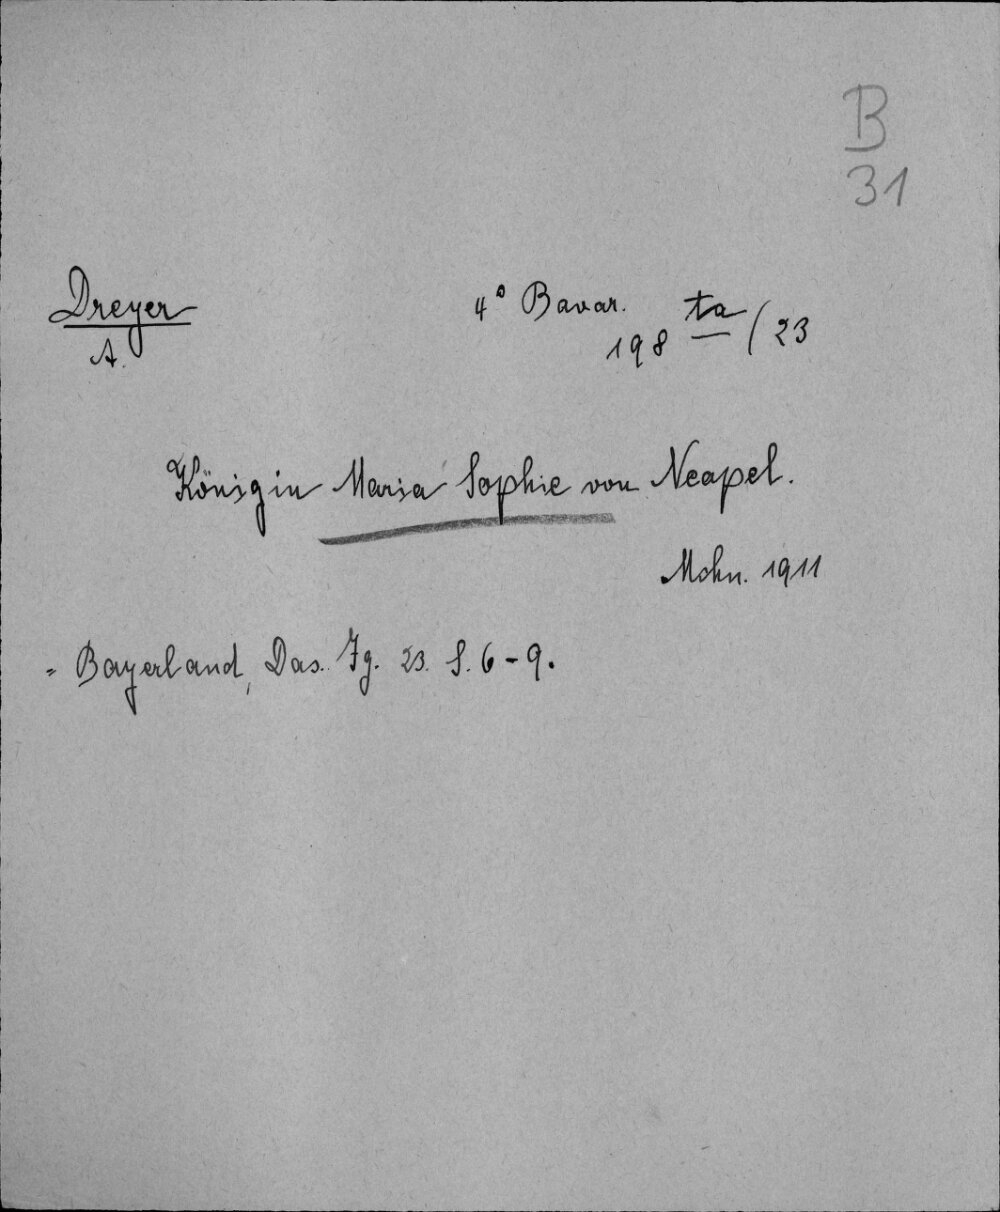 B
31
Dreyer
A.
4° Bavar.
198 ta / 23
Königin Maria Sophie von Neapel.
Mchn. 1911
= Bayerland, Das. Jg. 23. S. 6-9.